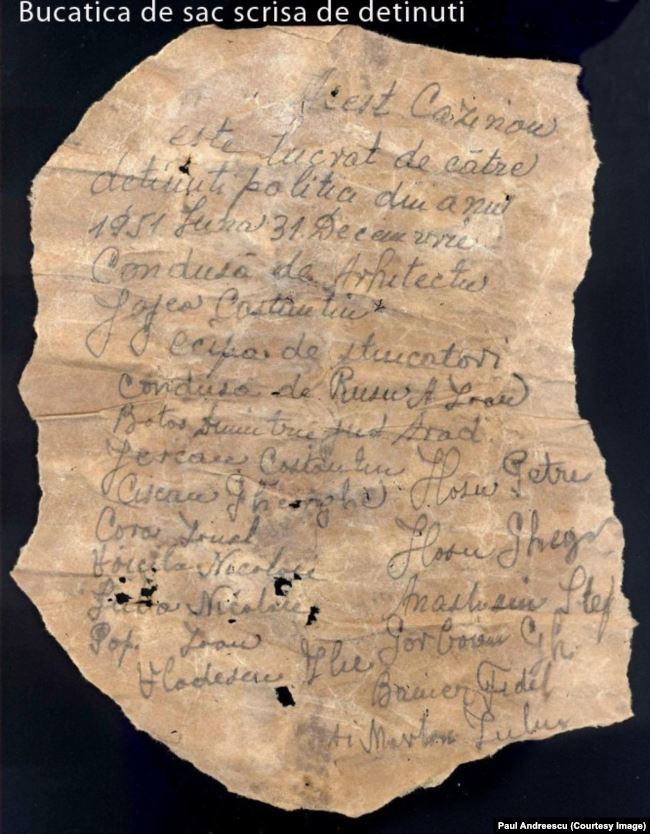 Bucatica de sac scrisa de detinuti
Acest Cazinou
este lucrat de către
detinuti politici din anu
1951 Luna 31 Decemvrie
Condusă de Arhitectu
Costantin
Ecipa de stucatori
condusă de Rusu A Ioan
Botos Dimitrie jud Arad
Jercan Costantin Hosu Petru
Ciscan Gheorghe
Cora Ionel Hosu Ghego
Nicolaie
Nicolaie Anastasiu Stef
Pop Ioan Gorbovan Gh
Vladescu Ghe
Fidel
Marton
Paul Andreescu (Courtesy Image)